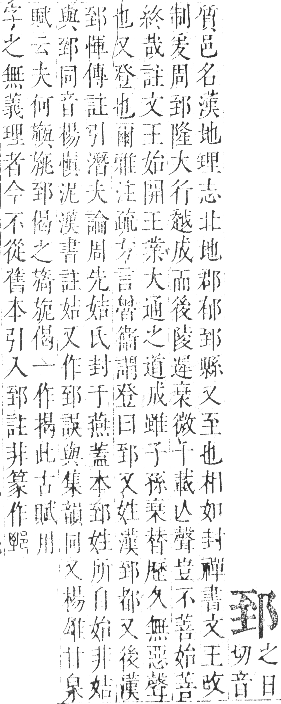 郅
之日
切音
質邑名漢地理志北地郡郁郅縣又至也相如封禪書文王改
制爰周郅隆大行越成而後陵遲衰微千載亡聲豈不善始善
終哉註文王始開王業大通之道成雖子孫衰替歷久無惡聲
也又登也爾雅注疏方言魯衞謂登曰郅又姓漢郅都又後漢
郅惲傳註引潛夫論周先姞氏封于燕蓋本郅姓所自始非姞
與郅同音楊慎泥漢書註姞又作郅誤與集韻同又楊雄甘泉
賦云夫何旟旐郅偈之旖旎偈一作揭此古賦用
字之無義理者今不從舊本引入郅註非篆作